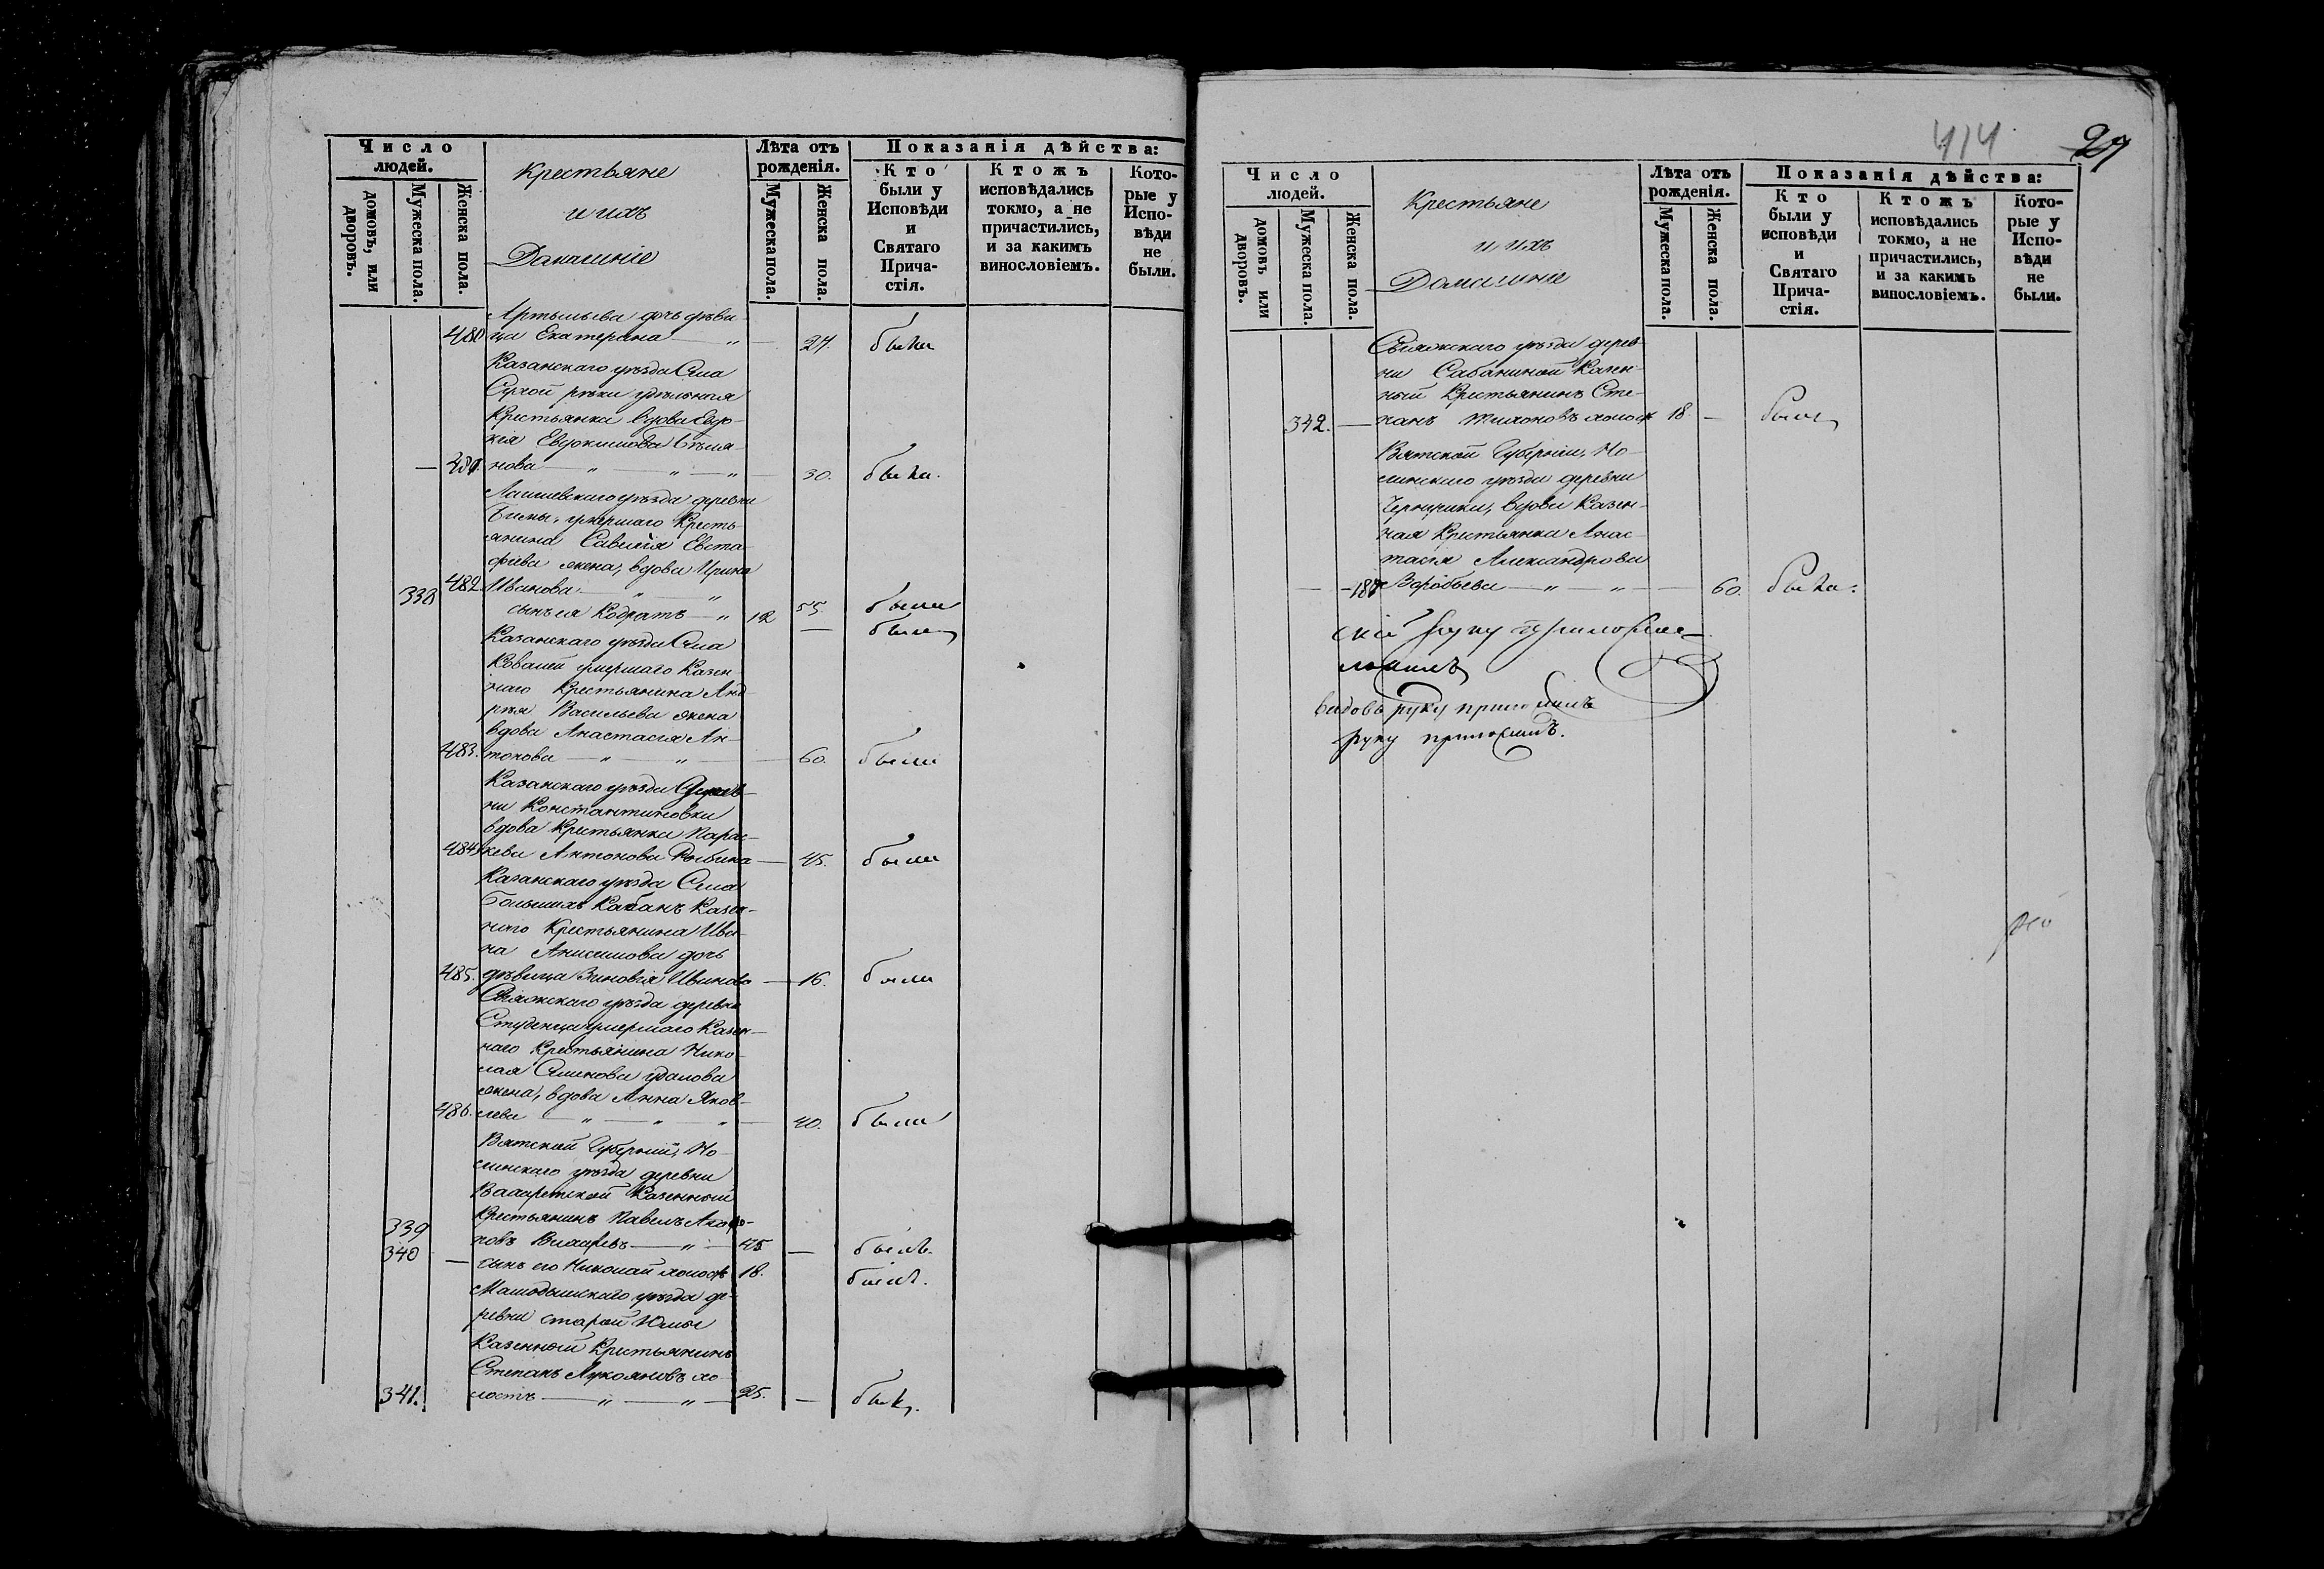 Число людей.
домовъ, или дворовъ.
Мужеска пола.
Женска пола.
Крестьяне
и ихъ
Домашніе
Лѣта отъ рожденія.
Мужеска пола.
Женска пола.
Показанія дѣйства:
Кто были у Исповѣди и Святаго Прича-стія.
Ктожъ исповѣдались токмо, а не причастились, и за какимъ винословіемъ.
Кото-рые у Испо-вѣди не были.
дочь дѣви-
480 ца Екатерина — „ — 27. была
Казанскаго уѣзда Села
Сухой рѣки удѣльная
Крестьянка вдова Евдо-
кія Евдокимова
— 481. нова — „ — „ — „ 30. была.
Лаишевскаго уѣзда деревни
умершаго Кресть-
янина Савелія Евста-
фіева жена, вдова Ирина
482 Иванова — „ — „ 55. была
338 сынъ ея Кодратъ — „ 12 — былъ
Казанскаго уѣзда Села
Ковалей умершаго Казен-
наго Крестьянина Анд-
рея Васильева жена
вдова Анастасія Ан-
483. тонова — „ — „ — 60. была
Казанскаго уѣзда Дерев-
ни Константиновки
вдова Крестьянка Парас-
484. кева Антонова Рыбина — 45. была
Казанскаго уѣзда Села
Большихъ Кабанъ Казен-
наго Крестьянина Ива-
на Анисимова дочь
485. дѣвица Зиновія Иванова — 16. была
Свіяжскаго уѣзда деревни
Студенца умершаго Казен-
наго Крестьянина Нико-
лая Семенова Удалова
жена, вдова Анна Яков-
486. лева — „ — „ — „ — 40. была
Вятской Губерніи, Но-
линскаго уѣзда деревни
Казенный
Крестьянинъ Павелъ Агафо-
339 новъ — „ — 45 — былъ.
340 — сынъ его Николай холостъ 18. былъ.
Мамадышскаго уѣзда де-
ревни старой Юмьи
Казенный Крестьянинъ
Степанъ Лукояновъ хо-
341. лостъ — „ — „ — 25. — былъ.
414 27
Число людей.
домовъ или дворовъ.
Мужеска пола.
Женска пола.
Крестьяне
и ихъ
Домашніе
Лѣта отъ рожденія.
Мужеска пола.
Женска пола.
Показанія дѣйства:
Кто были у исповѣди и Святаго Прича-стія.
Ктожъ исповѣдались токмо, а не причастились, и за какимъ винословіемъ.
Кото-рые у Испо-вѣди не были.
Свіяжскаго уѣзда дерев-
ни Сабакиной Казен-
ный Крестьянинъ Сте-
342. — панъ Тихоновъ холостъ 18 — былъ
Вятской Губерніи, Но-
линскаго уѣзда деревни
вдова Казен-
ная Крестьянка Анас-
тасія Александрова
— — 487 Воробьева — „ — „ — — 60. была.
скій руку приложилъ
руку приложилъ
руку приложилъ.